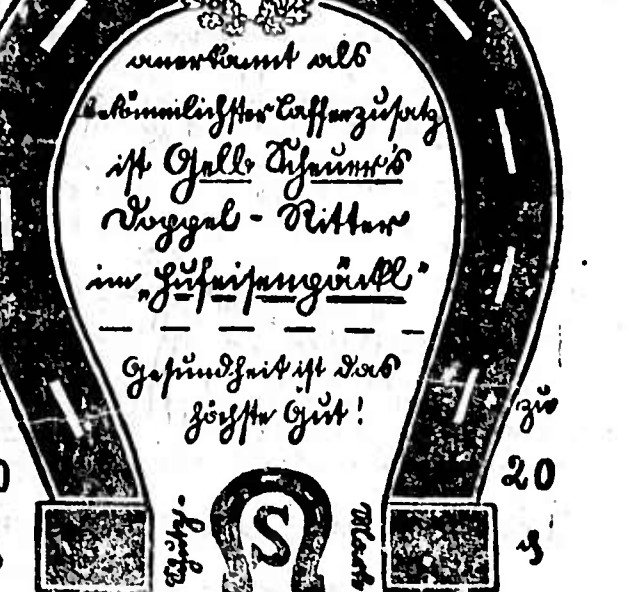 anerkannt als
bekömmlichster Caffeezusatz
ist Gebr. Scheuer's
Doppel - Ritter
im „Hufeisenpäckl“
Gesundheit ist das
höchste Gut!
zu
20
Schutz-
S
Marke